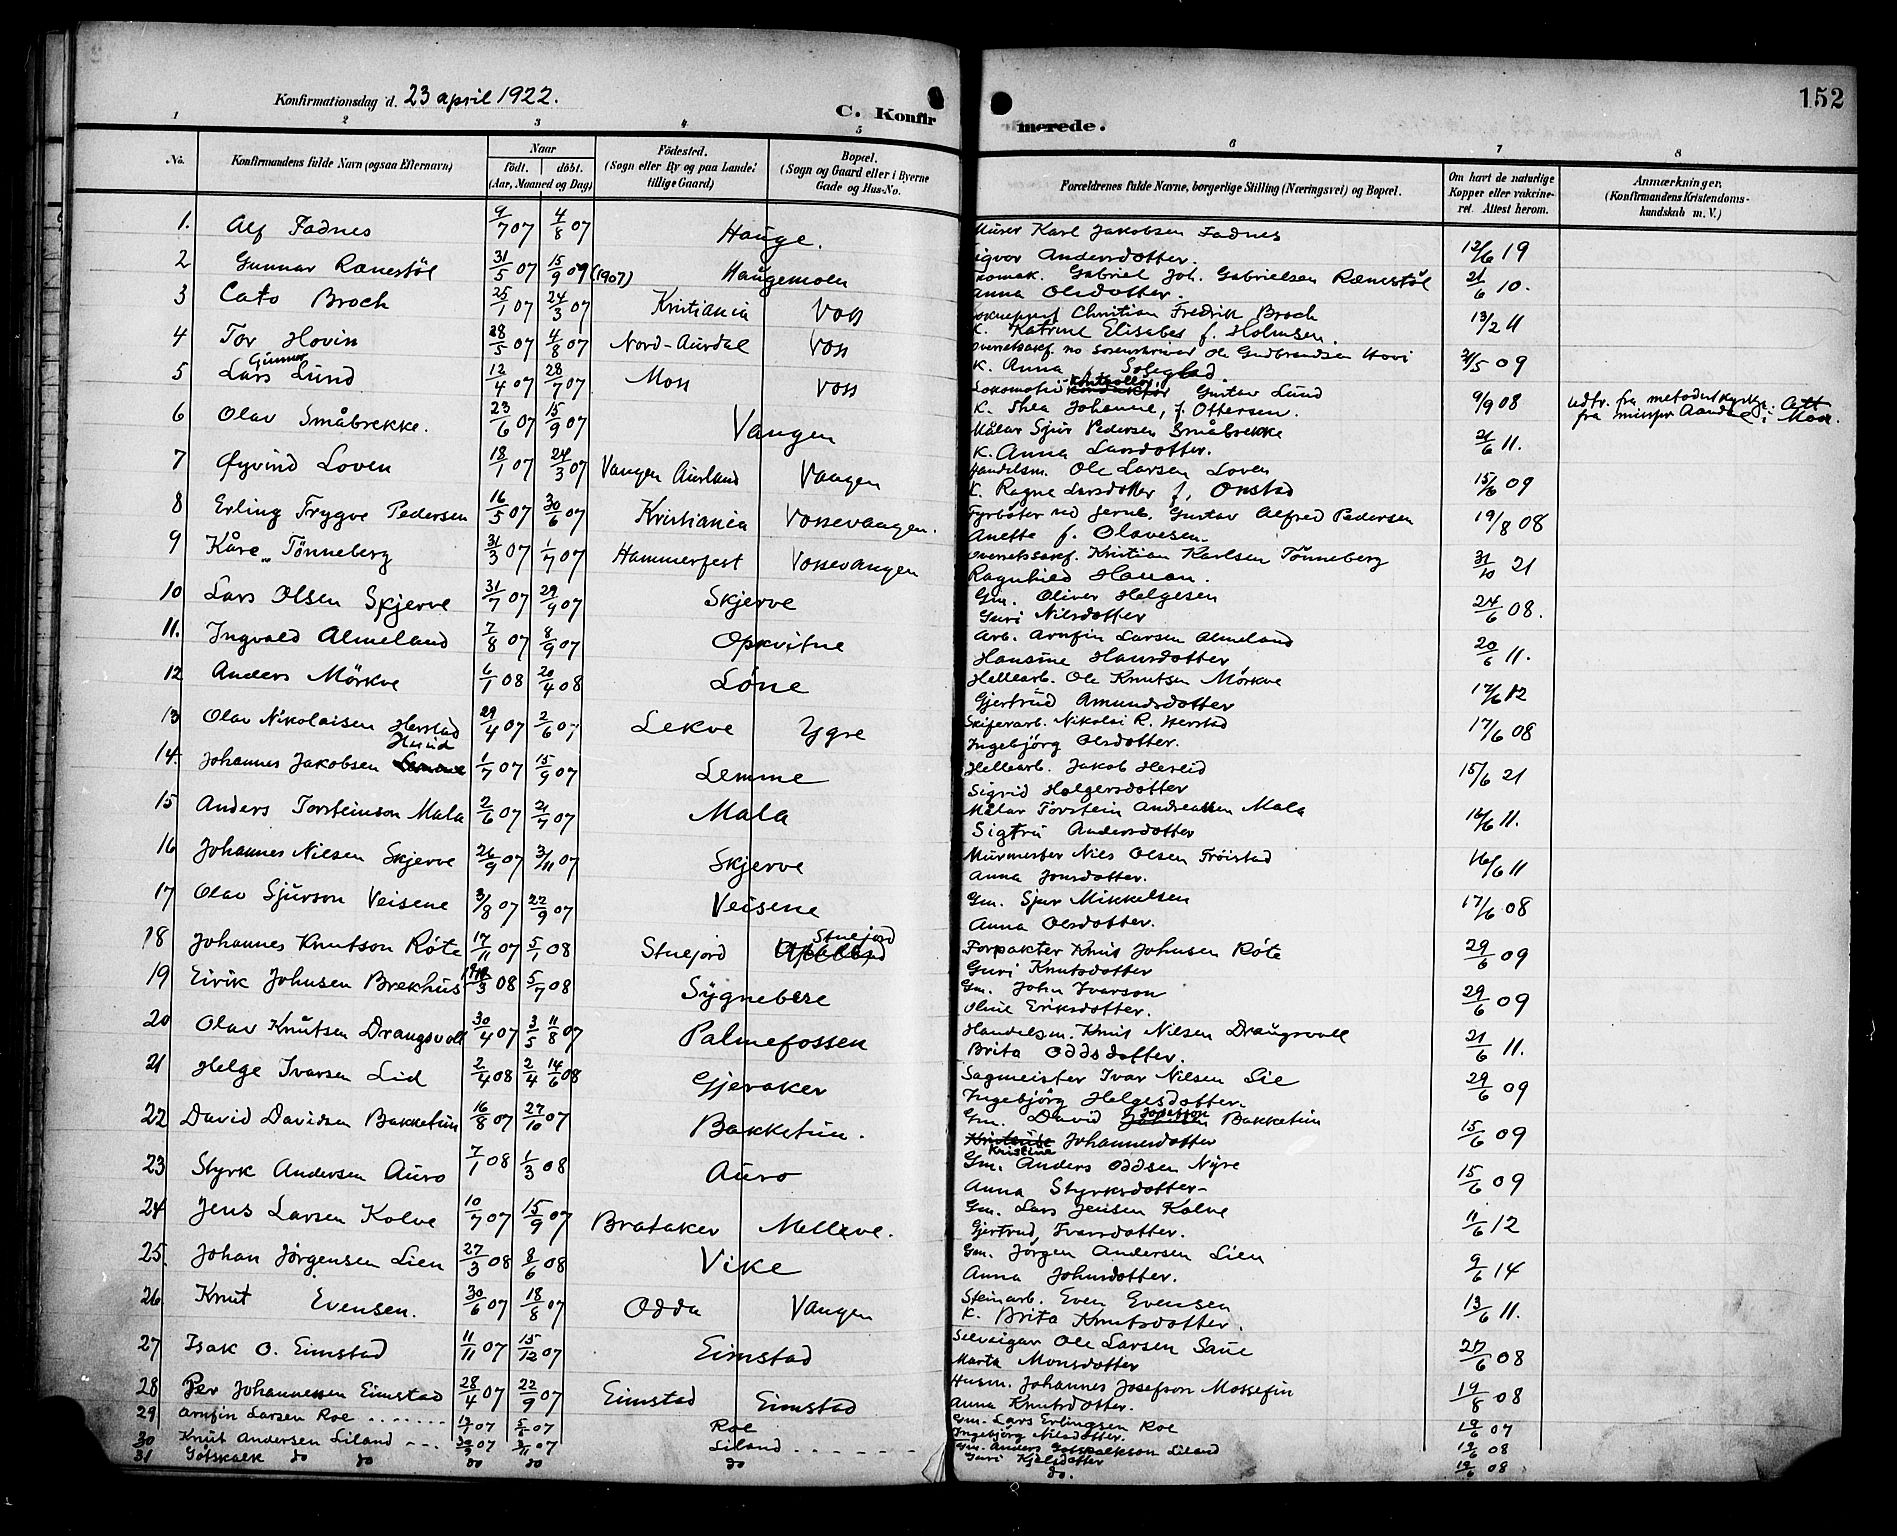 152
Konfirmationsdag d. 23 april 1922.
C. Konfirmerede.
1 2 3 4 5 6 7 8
No.
Konfirmandens fulde Navn (ogsaa Efternavn)
Naar
født. døbt.
(Aar, Maaned og Dag)
Fødested.
(Sogn eller By og paa Landet
tillige Gaard)
Bopæl.
(Sogn og Gaard eller i Byerne
Gade og Hus-No.
Forældrenes fulde Navne, borgerlige Stilling (Næringsvei) og Bopæl.
Om havt de naturlige
Kopper eller vakcine-
ret. Attest herom.
Anmærkninger.
(Konfirmandens Kristendoms-
kundskab m. V.)
1. Alf Fadnes 9/7 07 4/8 07 Hauge. Murer Karl Jakobsen Fadnes 12/6 19
Sigvor Andersdotter.
2 Gunnar Rænestöl 31/5 07 15/9 09 (1907) Haugemoen Gabriel Joh. Gabrielsen Rænestöl 21/6 10.
Anna Olsdotter.
3 Cato Broch 25/1 07 24/3 07 Kristiania Voss Christian Fredrik Broch 13/2 11
K. Katrine Elisabet f. Holmsen.
4 Tor Hovin 28/5 07 4/8 07 Nord-Aurdal Voss Overretssakf. no sorenskriver Ole Gudbrandsen Hovi 21/5 09
K. Anna Soleglad.
5 Lars Gunnar Lund 12/4 07 28/7 07 Moss Voss Lokomotiv kontrollör Gustav Lund 9/9 08 Udtr. fra metodistkyrkja. Att
K. Thea Johanne, f. Ottersen. fra minspr Aandal i Moss.
6 Olav Småbrekke. 23/6 07 15/9 07 Vangen Målar Sjur Pedersen Småbrekke 21/6 11.
K. Anna Larsdotter.
7 Øyvind Loven 18/1 07 24/3 07 Vangen Aurland Vangen Handelsm. Ole Larsen Loven 15/6 09
K. Ragne Larsdotter f. Onstad
8 Erling Trygve Pedersen 16/5 07 30/6 07 Kristiania Vossevangen. Fyrböter ved Jernb. Gustav Alfred Pedersen 19/8 08
Anette f. Olavesen.
9 Kåre Tönneberg 31/3 07 1/7 07 Hammerfest Vossevangen Overretssakf. Kristian Karlsen Tönneberg 31/10 21
Ragnhild Hauan.
10 Lars Olsen Skjerve 31/7 07 29/9 07 Skjerve Gm. Oliver Helgesen 24/6 08.
Guri Nilsdotter
11. Ingvald Almeland 7/8 07 8/9 07 Opkvitne Arb. Arnfin Larsen Almeland 20/6 11.
Hansine Hansdotter
12 Anders Mörkve 6/1 08 20/4 08 Löne Hellearb. Ole Knutsen Mörkve 17/6 12
Gjertrud Amundsdotter
13 Olav Nikolaisen Herstad 29/4 07 2/6 07 Lekve Ygre Skiferarb. Nikolai R. Herstad 17/6 08
Ingebjörg Olsdotter.
14. Johannes Jakobsen Hereid 1/7 07 15/9 07 Lemme Hellearb. Jakob Hereid 15/6 21
Sigrid Holgersdotter
15 Anders Torsteinson Mala 2/6 07 21/7 07 Mala Målar Torstein Andreassen Mala 16/6 11.
Sigtru Andersdotter
16 Johannes Nilsen Skjerve 26/9 07 3/11 07 Skjerve Murmester Nils Olsen Tröistad 16/6 11
Anna Jonsdotter.
17 Olav Sjurson Veisene 3/8 07 22/9 07 Veisene Gm. Sjur Mikkelsen 17/6 08
Anna Olsdotter.
18 Johannes Knutson Røte 17/11 07 5/1 08 Stuejord Stuejord Forpakter Knut Johnsen Røte 29/6 09
Guri Knutsdotter
19 Eirik Johnsen Brekhus 3 08 5/7 08 Sygnebere Gm. John Ivarson 29/6 09
Oline Eriksdotter.
20 Olav Knutsen Draugsvoll 30/4 07 3/5 11/8 07 Palmefossen Handelsm. Knut Nilsen Draugsvoll 21/6 11.
Brita Oddsdotter.
21 Helge Ivarsen Lid 2/4 08 2/4 14/6 08 Gjeraker Sagmeister Ivar Nilsen Lie 29/6 09
Ingebjörg Helgesdotter.
22 David Davidsen Bakketun 16/8 07 27/10 07 Bakketun. Gm. David Bakketun 15/6 09
Kristine Johannesdotter
23 Styrk Andersen Auro 7/1 08 1/3 08 Auro Gm. Anders Oddsen Nyre 15/6 09
Anna Styrksdotter
24 Jens Larsen Kolve 10/7 07 15/9 07 Brataker Melleve. Gm. Lars Jensen Kolve 11/6 12
Gjertrud Ivarsdotter.
25. Johan Jörgensen Lien 27/3 08 8/6 08 Vike Gm. Jörgen Andersen Lien 9/6 14
Anna Johnsdotter.
26 Knut Evensen. 30/6 07 18/8 07 Odda Vangen Steinarb. Even Evensen 13/6 11.
K. Brita Knutsdotter.
27 Isak O. Eimstad 11/11 07 15/12 07 Eimstad Selveigar Ole Larsen Saue 27/6 08
Marta Monsdotter
28 Per Johannessen Eimstad 28/4 07 22/9 07 Eimstad Eimstad Husm. Johannes Josefson Mossefin 19/8 08
Anna Knutsdotter.
29 Arnfin Larsen Roe 07 07 Roe Gm. Lars Erlingsen Roe 19/6 07
Ingebjörg Nilsdotter.
30 Knut Andersen Liland 07 07 Liland Gm. Anders Gotskalkson Liland 19/6 08
Guri Kjelsdotter
31 Gotskalk do do do do do do. 19/6 08